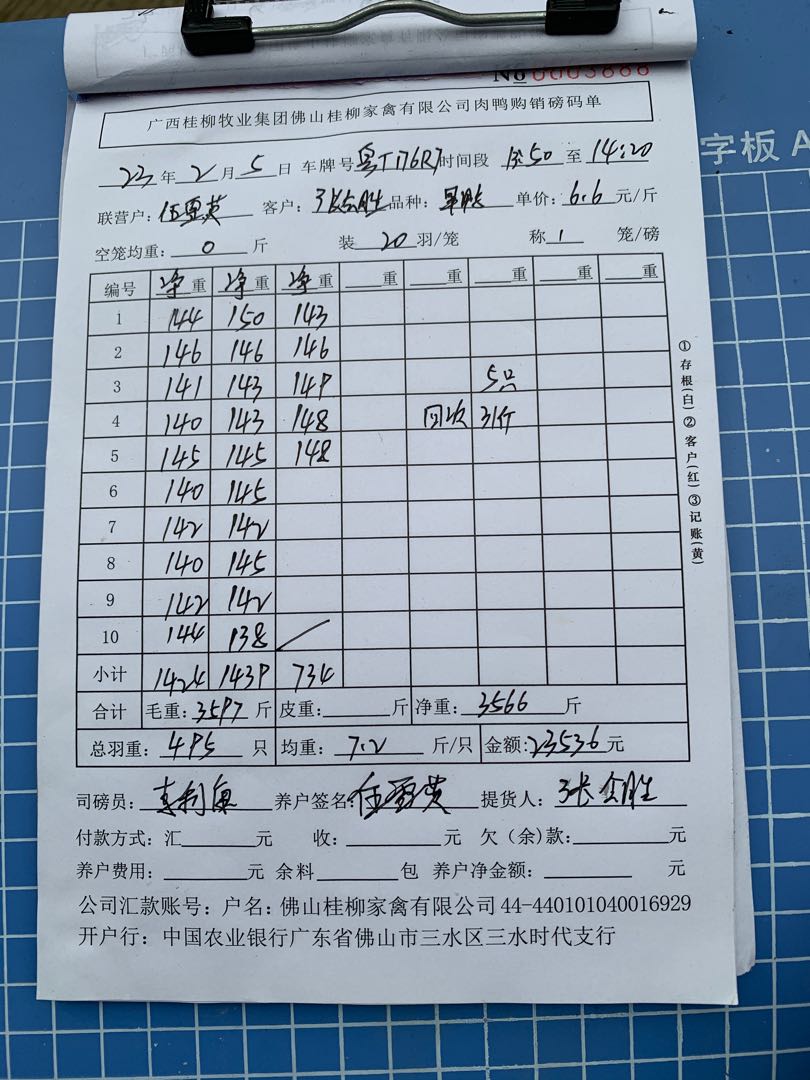 No
广西桂柳牧业集团佛山桂柳家禽有限公司肉鸭购销磅码单
23 年 2 月 5 日 车牌号 粤T176R7 时间段 13:50 至 14:20
联营户: 客户: 张全胜 品种: 单价: 6.6 元/斤
空笼均重: 0 斤 装 20 羽/笼 称 1 笼/磅
编号 净重 净重 净重 重 重 重 重 重
1 144 150 143
2 146 146 146
3 141 143 149 5只
4 140 143 148 回收 31斤
5 145 145 148
6 140 145
7 142 142
8 140 145
9 142 142
10 144 138
小计 1424 1439 734
合计 毛重: 3597 斤 皮重: 斤 净重: 3566 斤
总羽重: 495 只 均重: 7.2 斤/只 金额: 23536 元
司磅员: 养户签名: 提货人: 张全胜
付款方式: 汇 元 收: 元 欠(余)款: 元
养户费用: 元 余料 包 养户净金额: 元
公司汇款账号: 户名: 佛山桂柳家禽有限公司 44-440101040016929
开户行: 中国农业银行广东省佛山市三水区三水时代支行
①存根(白)②客户(红)③记账(黄)
字板 A